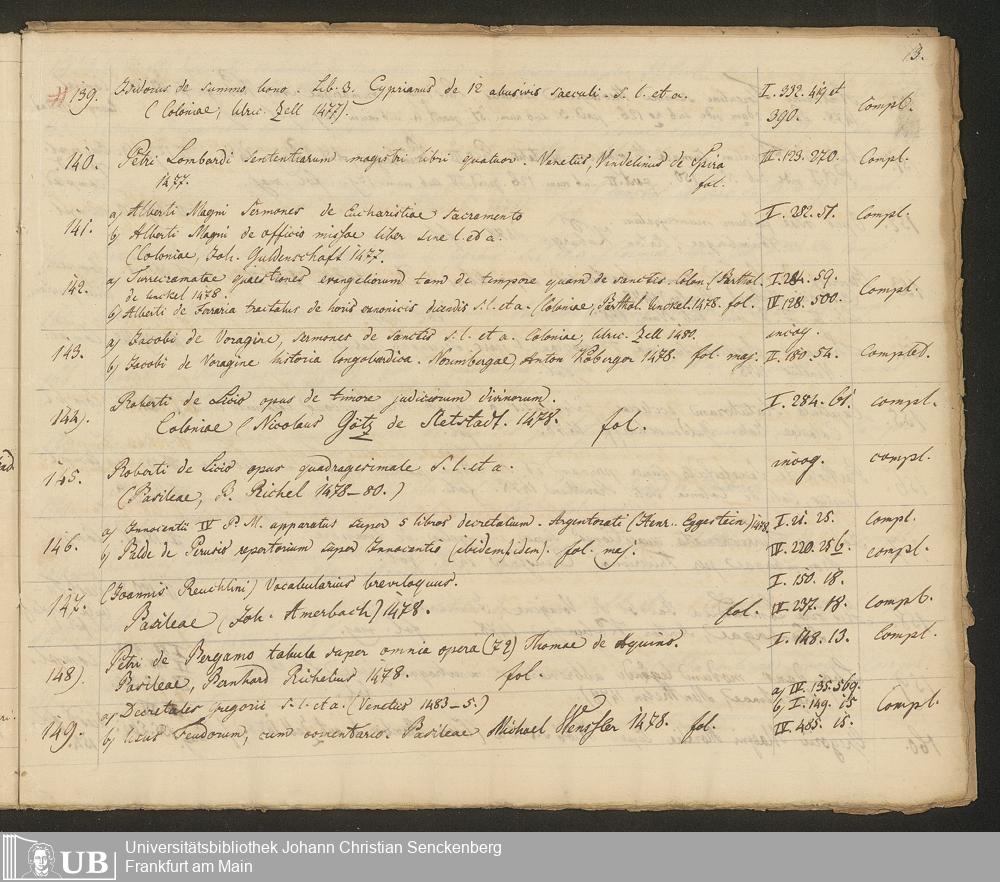 13.
139. Isidorus de summo bono. Lib. 3. Cyprianus de 12 abusivis saeculi. s. l. et a. I. 332. 419 et compl.
(Coloniae, Ulric. Zell 1477). 390.
140. Petri Lombardi sententiarum magistri libri quatuor. Venetiis, Vindelinus de Spira III. 123. 270. Compl.
1477. fol.
a) Alberti Magni Sermones de Eucharistiae sacramento I. 282. 51. Compl.
141. b) Alberti Magni de officio missae liber sine l. et a.
(Coloniae, Joh. Guldenschaft 1477.
142. a) Turrecramatae quaestiones evangeliorum tam de tempore quam de sanctis. Colon. (Barthol. I. 284. 59. Compl.
de Unckel 1478.
b) Alberti de Ferraria tractatus de horis canonicis dicendis s. l. et a. (Coloniae, Barthol. Unckel. 1478. fol. IV 128. 500.
143. a) Jacobi de Voragine, sermones de Sanctis s. l. et a. Coloniae, Ulric. Zell 1480. incog.
b) Jacobi de Voragine historia longobardica. Nourmbergae, Anton Koberger 1478. fol. maj. II. 180. 54. Complet.
144). Roberti de Licio opus de timore judiciorum divinorum. I. 284. 61. compl.
Coloniae (Nicolaus Götz de Sletstadt. 1478. fol.
145. Roberti de Licio opus quadragesimale s. l. et a. incog. compl.
(Basileae, B. Richel 1478–80.)
146. a) Innocentii IV P. M. apparatus super 5 libros decretalium. Argentorati (Henr. Eggestein) 1478 I. 21. 25. compl.
b) Balde de Perusio repertorium super Innocentio (ibidem, idem). fol. maj. IV. 220. 256. compl.
147. (Joannis Reuchlini) Vocabularius breviloquus. I. 150. 18.
Basileae (Joh. Amerbach) 1478. fol. IV. 237. 18. compl.
148). Petri de Bergamo tabula super omnia opera (72) Thomae de Aquino. I. 148. 13. Compl.
Basileae, Bernhard Richelius 1478. fol.
149. a) Decretales Gregorii s. l. et a. (Venetiis 1483–5.) a) IV. 135. 569. Compl.
b) I. 149. 15
b) Usus Feudorum, cum comentario. Basileae Michael Wenssler 1478. fol. IV. 485. 15.
UB
Universitätsbibliothek Johann Christian Senckenberg
Frankfurt am Main